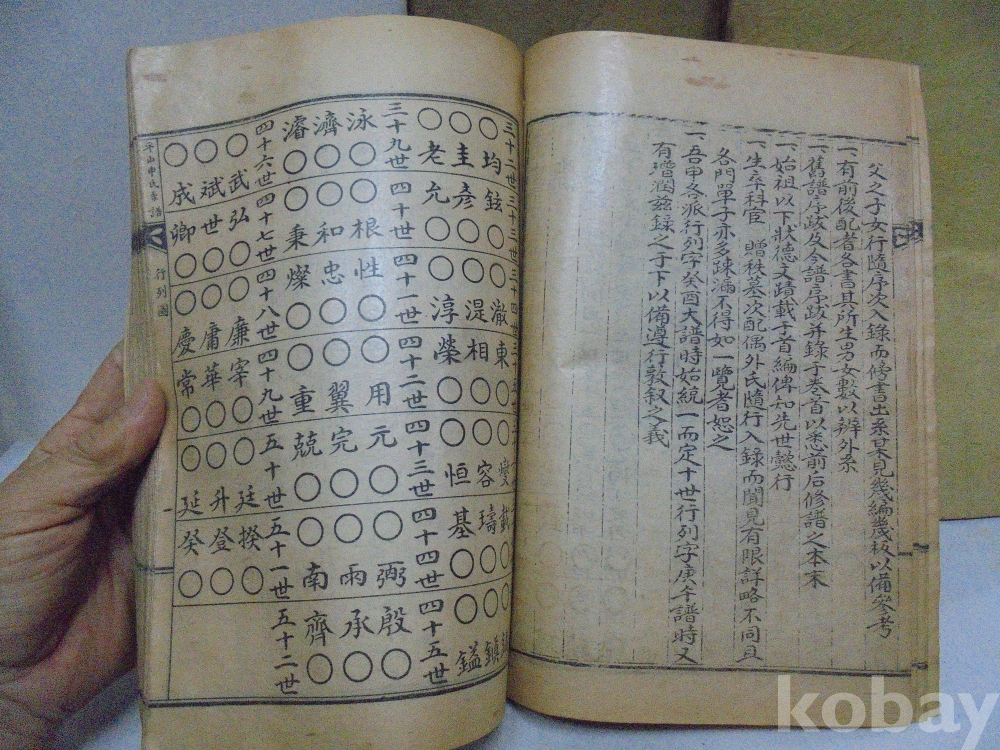 父之子女行隨序次入錄而傍書出系某見幾編幾板以備參考
一有前後配者各書其所生男女數以辨外系
一舊譜序跋及今譜序跋并錄于卷首以悉前后修譜之本末
一始祖以下狀德文蹟載于首編俾知先世懿行
一生卒科官 贈秩墓次配偶外氏隨行入錄而聞見有限詳略不同且
各門單子亦多疎漏不得如一覽者恕之
一吾申各派行列字癸酉大譜時始統一而定十世行列字庚午譜時又
有增潤玆錄之于下以備遵行敦叙之義
三十二世
○均
○圭
○老
三十三世
鉉○
彥○
允○
三十四世
○澈
○湜
○淳
東○
相○
榮○
○燮
○容
○恒
載○
璹○
基○
○鎭
○鎰
三十九世
泳○
濟○
濬○
四十世
○根
○和
○秉
四十一世
性○
忠○
燦○
四十二世
○用
○翼
○重
四十三世
元○
完○
兢○
四十四世
○弼
○雨
○南
四十五世
殷○
承○
齊○
四十六世
○武
○斌
○成
四十七世
弘○
世○
卿○
四十八世
○廉
○庸
○慶
四十九世
宰○
華○
常○
五十世
○廷
○升
○延
五十一世
揆○
登○
癸○
五十二世
平山申氏家譜
行列圖
一
kobay